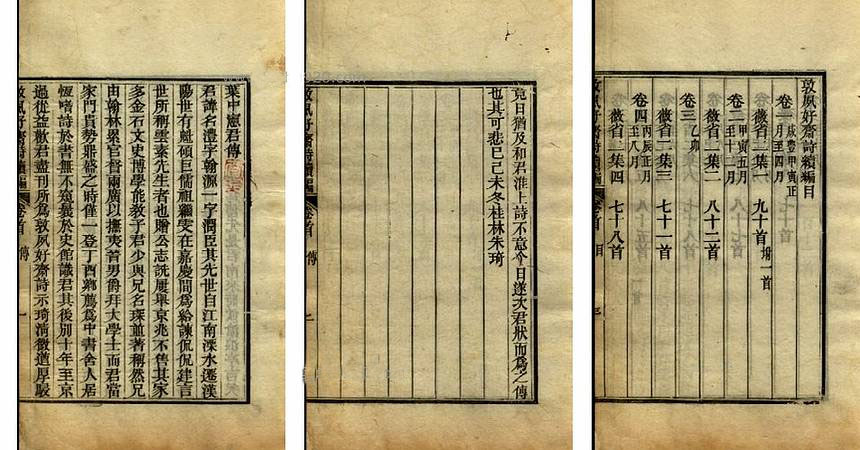 葉中憲君傳
君諱名澧字翰源一字潤臣其先世自江南溧水遷漢
陽世有魁碩巨儒祖繼雯在嘉慶間爲給諫侃侃建言
世所稱雲素先生者也贈公志詵屢舉京兆不售其家
多金石文史博學能教子君少與兄名琛並著稱然兄
由翰林累官督兩廣以撫夷晉男爵拜大學士而君當
家門貴勢鼎盛之時僅一登丁酉鄉薦爲中書舍人居
恆嗜詩於書無不窺曩於史館識君其後別十年至京
過從益數君盡刊所爲敦夙好齋詩示琦清微道厚嚴
敦夙好齋詩續編 卷首 傳 一
竟日猶及和君淮上詩不意今日遂次君狀而爲之傳
也其可悲已己未冬桂林朱琦
敦夙好齋詩續編 卷首 傳 二
敦夙好齋詩續編目
卷一 咸豐甲寅正月至四月
薇省二集一 九十首 增一首
卷二 甲寅五月至十二月
薇省二集二 八十二首
卷三 乙卯
薇省二集三 七十一首
卷四 丙辰正月至八月
薇省二集四 七十八首
敦夙好齋詩續編 卷首 目